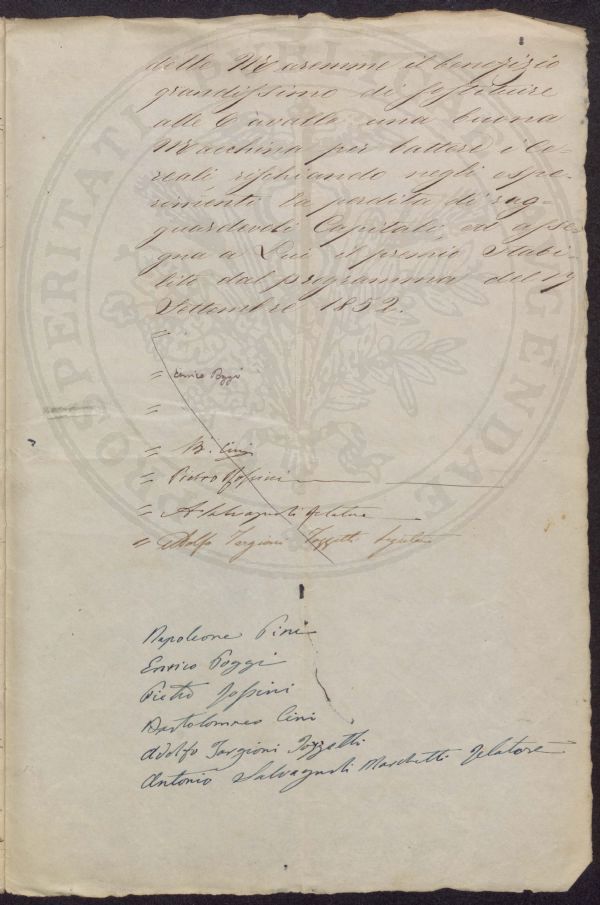 delle Maremme il benefizio
grandissimo di sostituire
alle Cavalle una buona
Macchina per battere i Ce-
reali rischiando negli espe-
rimenti la perdita di rag-
guardevoli Capitali, ed asse-
gna a Lui il premio Stabi-
lito dal programma del 17
Settembre 1852.
=
= Enrico Poggi
=
= B. Cini
= Pietro
= A Salvagnoli Relatore
= Adolfo Targioni Tozzetti Segretario
Napoleone Pini
Enrico Poggi
Pietro
Bartolommeo Cini
Adolfo Targioni Tozzetti
Antonio Salvagnoli Marchetti Relatore
PROSPERITATI PUBLICAE AUGENDAE